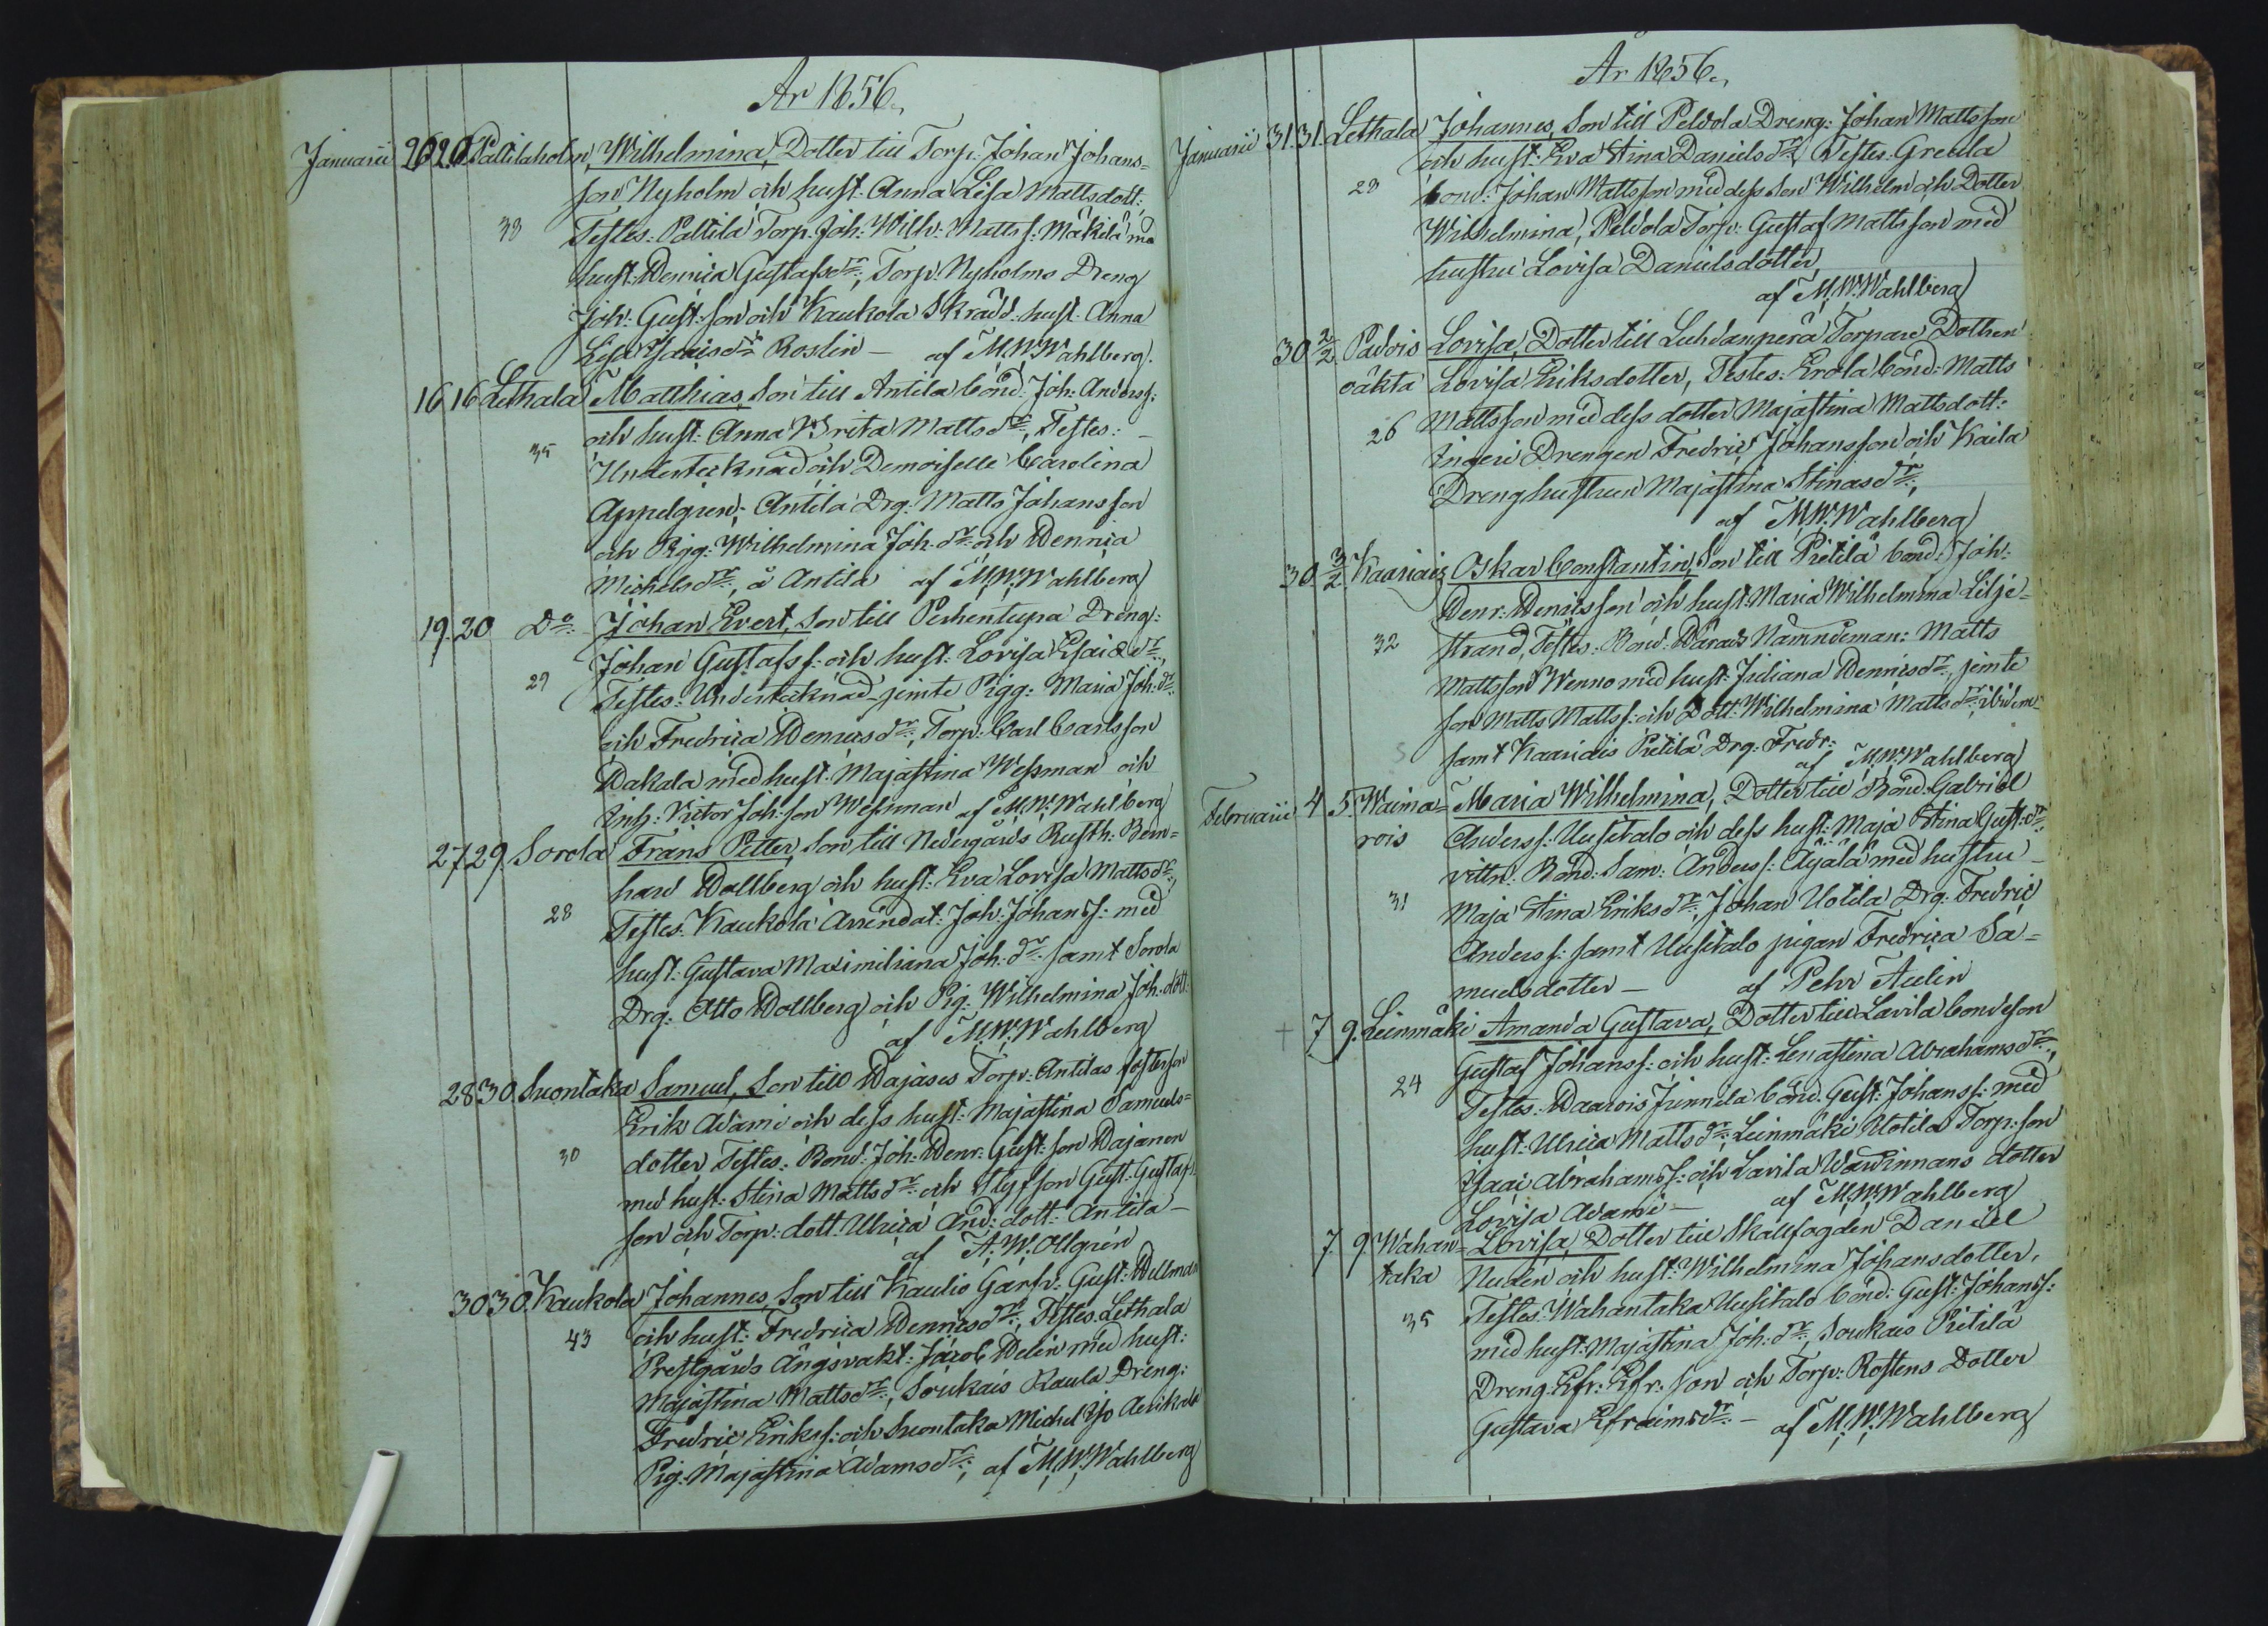 År 1856.
Januarii 26 26 Pallilaholm, Wilhelmina, Dotter till Torp: Johan Johans=
son Nyholm och hust: Anna Lisa Mattsdott:
38 Testes: Pallila Torp. Joh: Wilh: Matts s: Mäkilä me
hust: Henrica Gustafsdr:, Torp: Nyholms Dreng
Joh: Gust:son och Kaukola Skrädd: hust. Anna
Lisa Isaacsdr Roslin — af M.W.Wahlberg.
16 16 Lethala Matthias, Son till Antila bond: Joh: Anders s:
35 och hust: Anna Brita Mattsdr:, Testes: —
Undertecknad och Demoiselle Carolina
Appelgren; Antila Drg: Matts Johansson
och Pigg: Wilhelmina Joh:dr: och Henrica
Michelsdr:, å Antila af M.W.Wahlberg
19. 20 Do: Johan Evert, Son till Perhentupa Dreng:
29 Johan Gustafs s: och hust: Lovisa Esaiædr:,
Testes: Undertecknad jemte Pigg: Maria Joh:dr:
och Fredrica Henricsdr:, Torp: Carl Carlsson
Hakala med hust: Majastina Wessman och
Inh: Victor Joh:son Wessman af M.W.Wahlberg
27 29. Sorola Frans Petter, Son till Nedergårds Rusth: Bern=
hard Hallberg och hust: Eva Lovisa Mattsdr:,
28 Testes: Kaukola Arrendat: Joh: Johans s: med
hust: Gustava Maximiliana Joh:dr: samt Sorola
Drg: Otto Hallberg och Pig: Wilhelmina Joh:dott:
af M.W.Wahlberg
28 30. Suontaka Samuel, Son till Hajases Torp: Antilas fosterson
Erik Adami och dess hust: Majastina Samuels=
30 dotter Testes: Bond: Joh: Henr: Gust:son Hajanen
med hust: Stina Mattsdr: och Styfson Gust: Gustafs
son och Torp: dott: Ulrica And: dott: Antila —
af A.W.Ollgren
30 30. Kaukola Johannes, Son till Kaulio Garfv: Gust: Hellman
43 och hust: Fredrica Henricsdr:, Testes: Lethala
Prestgårds Ängsvakt: Jacob Helin med hust:
Majastina Mattsdr:, Soukais Raula Dreng:
Fredric Eriks s: och Suontaka Michel Iso Aerikoda
Pig: Majastina Adamsdr:, af M.W.Wahlberg
År 1856.
Januarii 31. 31. Lethala Johannes, Son till Peldola Dreng: Johan Mattsson
och hust: Eva Stina Danielsdr: Testes: Greula
23 bond: Johan Mattsson med dess Son Wilhelm och Dotter
Wilhelmina, Peldola Torp: Gustaf Mattsson med
hustru Lovisa Danielsdotter
af M.W.Wahlberg
30 2/2 Padois Lovisa, Dotter till Luhdanperä Torpare Dottren
oäkta Lovisa Eriksdotter, Testes: Erola bond: Matts
26 Mattsson med dess dotter Majastina Mattsdott:
Ingeri Drengen Fredric Johansson och Kaila
Drenghustrun Majastina Stinasdr:,
af M.W.Wahlberg
30. 3/2. Kaariais Oskar Constantin, Son till Pietilä bond: Joh:
Henr: Henricsson och hust: Maria Wilhelmina Lilje=
32 strand, Testes: Bond: Härads Nämndeman: Matts
Mattsson Wenno med hust: Juliana Henricsdr:, jemte
Son Matts Matts s: och Dott: Wilhelmina Mattsdr: ibidem
samt Kaariais Pietilä Drg: Fredr:
af M.W.Wahlberg
Februarii 4 5. Waima= Maria Wilhelmina, Dotter till Bond: Gabriel
rois Anders s: Uusitalo och dess hust: Maja Stina Gust:dr:
vittn: Bond: Sam: Anders s: Äijälä med hustru
31 Maja Stina Eriksdr: Johan Uotila Drg: Fredric
Anders s: samt Uusitalo pigan Fredrica Sa=
muelsdotter — af Pehr Aulin
+ 7 9. Leinmäki Amanda Gustava, Dotter till Lavila bondeson
Gustaf Johans s: och hust: Lenastina Abrahamsdr:,
24 Testes: Haarois Junnila bond: Gust: Johans s: med
hust: Ulrica Mattsdr:, Leinmäki Uotila Torp: son
Isaac Abrahams s: och Lavila Wärdinnans dotter
Lovisa Adami — af M.W.Wahlberg
7. 9. Wahan= Lovisa, Dotter till Skallfogden Daniel
taka Nuden och hust: Wilhelmina Johansdotter,
35 Testes: Wahantaka Uusitalo bond: Gust: Johans s:
med hust: Majastina Joh:dr:, Soukais Pietilä
Dreng: Efr: Efr: son och Torp: Rostens Dotter
Gustava Efraimsdr: — af M.W.Wahlberg